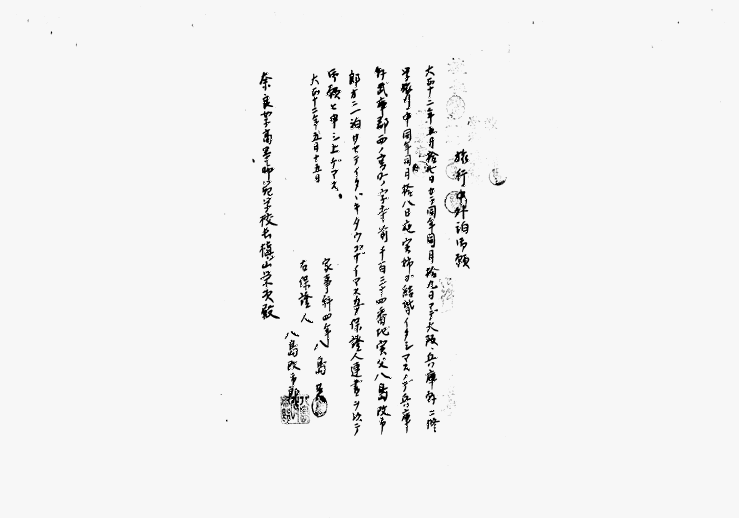 旅行中外泊御願
大正十二年五月拾七日ヨリ同年同月拾九日マデ大阪、兵庫縣ニ修
学旅行中同年同月拾八日夜実姉ガ結婚イタシマスノデ兵庫
縣武庫郡西ノ宮町ノ字寺前千百三十四番地実父八島改市
郎方ニ一泊サセテイタヾキタウゴザイマス故保證人連書ヲ以テ
御願ヒ申シ上ゲマス。
大正十二年五月十五日
家事科四年 八島
右保證人
八島改市郎
奈良女子高等師範学校長槇山栄次殿